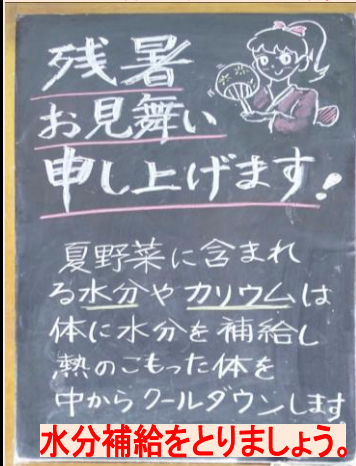 残暑
お見舞い
申し上げます!
夏野菜に含まれ
る水分やカリウムは
体に水分を補給し
熱のこもった体を
中からクールダウンします
水分補給をとりましょう。